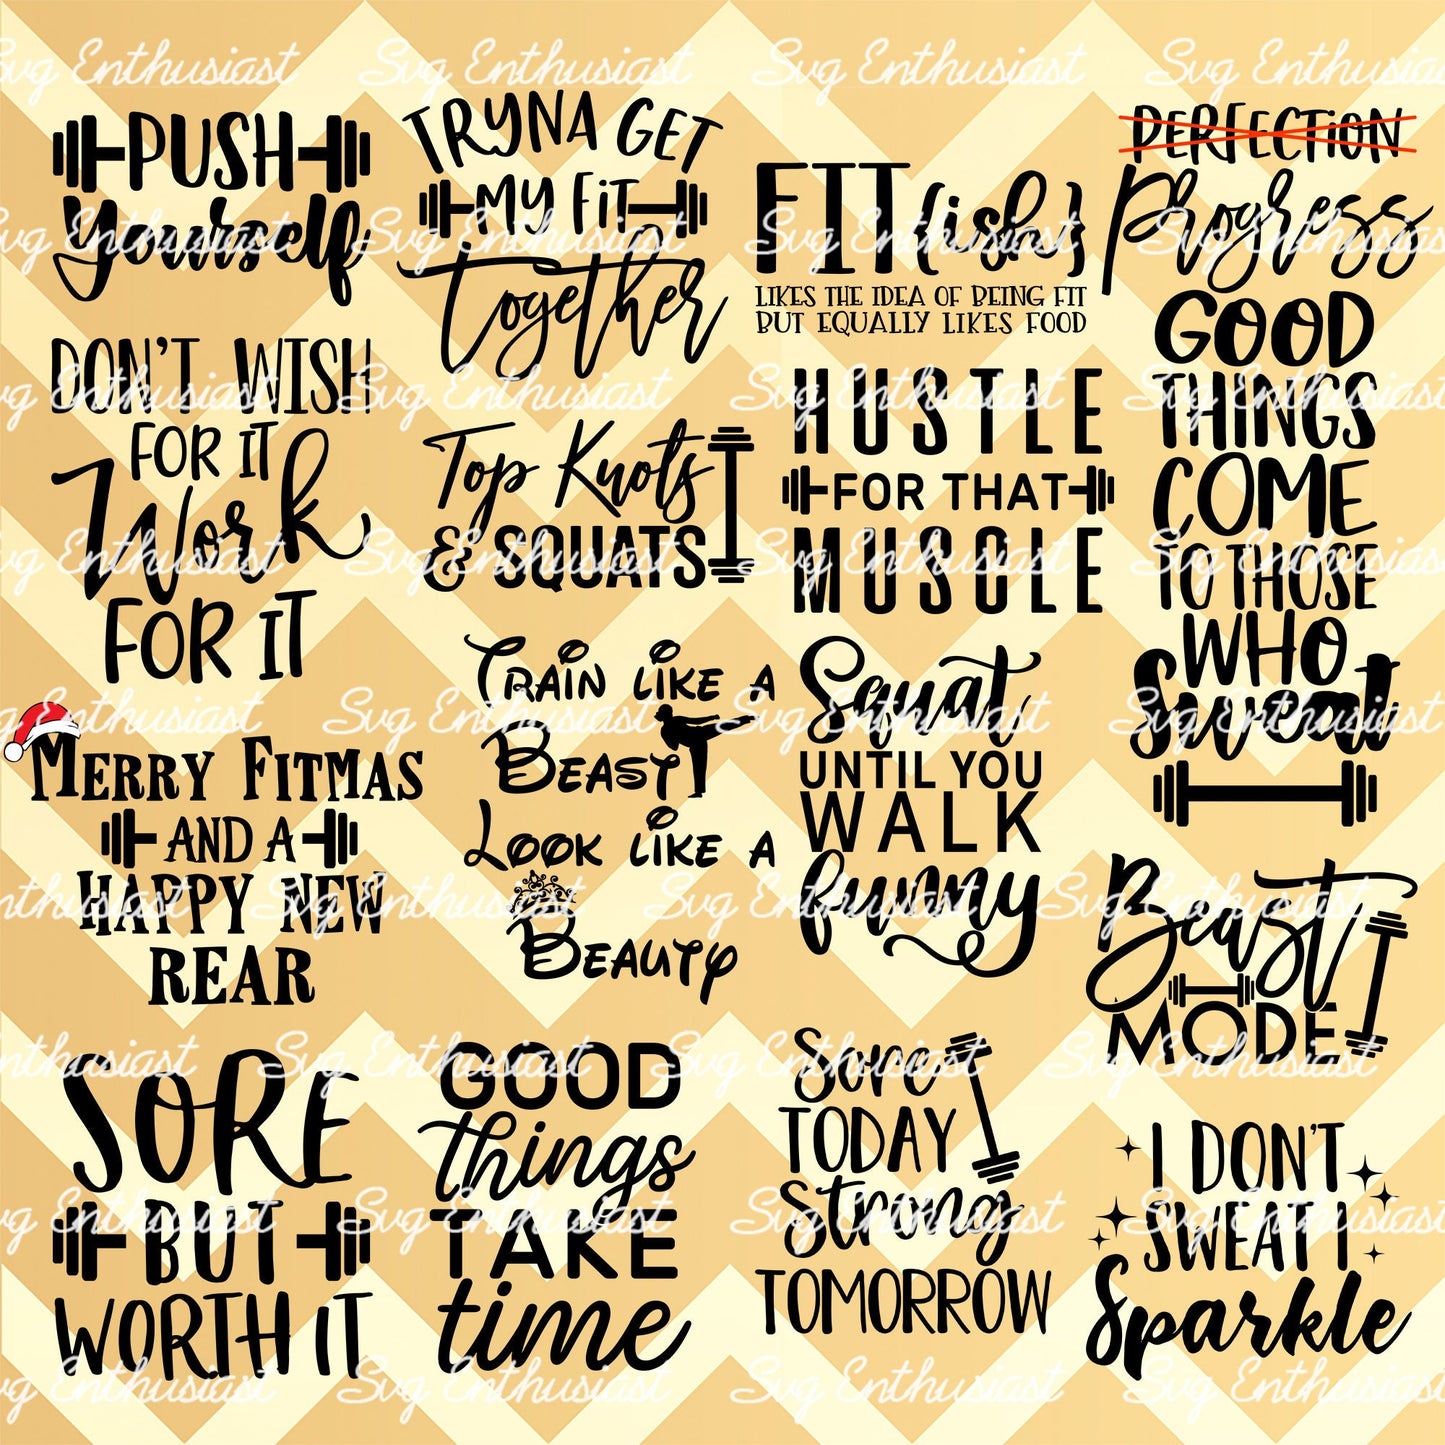 Svg Enthusiast Svg Enthusiast Svg Enthusiast Svg Enthusiast
PUSH
Yourself
TRYNA GET
MY FiT
Together
FIT{ish}
LIKES THE IDEA OF BEING FIT
BUT EQUALLY LIKES FOOD
PERFECTiON
Progress
DON'T WISH
FOR IT
Work
FOR IT
Top Knots
& SQUATS
HUSTLE
FOR THAT
MUSCLE
GOOD
THINGS
COME
TO THOSE
WHO
Sweat
MERRY FITMAS
AND A
HAPPY NEW
REAR
TRAIN LIKE A
BEAST
LOOK LIKE A
BEAUTY
Squat
UNTIL YOU
WALK
funny
Beast
MODE
SORE
BUT
WORTH IT
GOOD
things
TAKE
time
Sore
TODAY
Strong
TOMORROW
I DON'T
SWEAT I
Sparkle